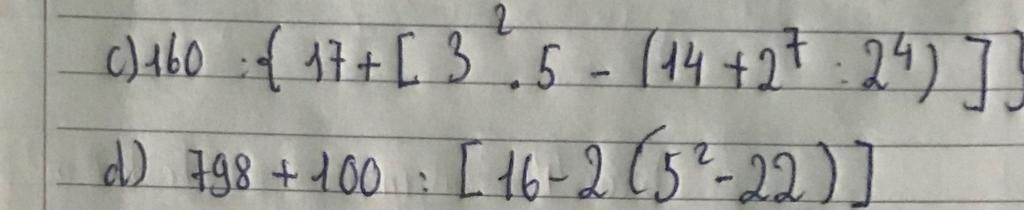 c) 160 : { 17 + [ 3² . 5 - (14 + 2⁷ : 2⁴) ] }
d) 798 + 100 : [ 16 - 2 (5² - 22) ]